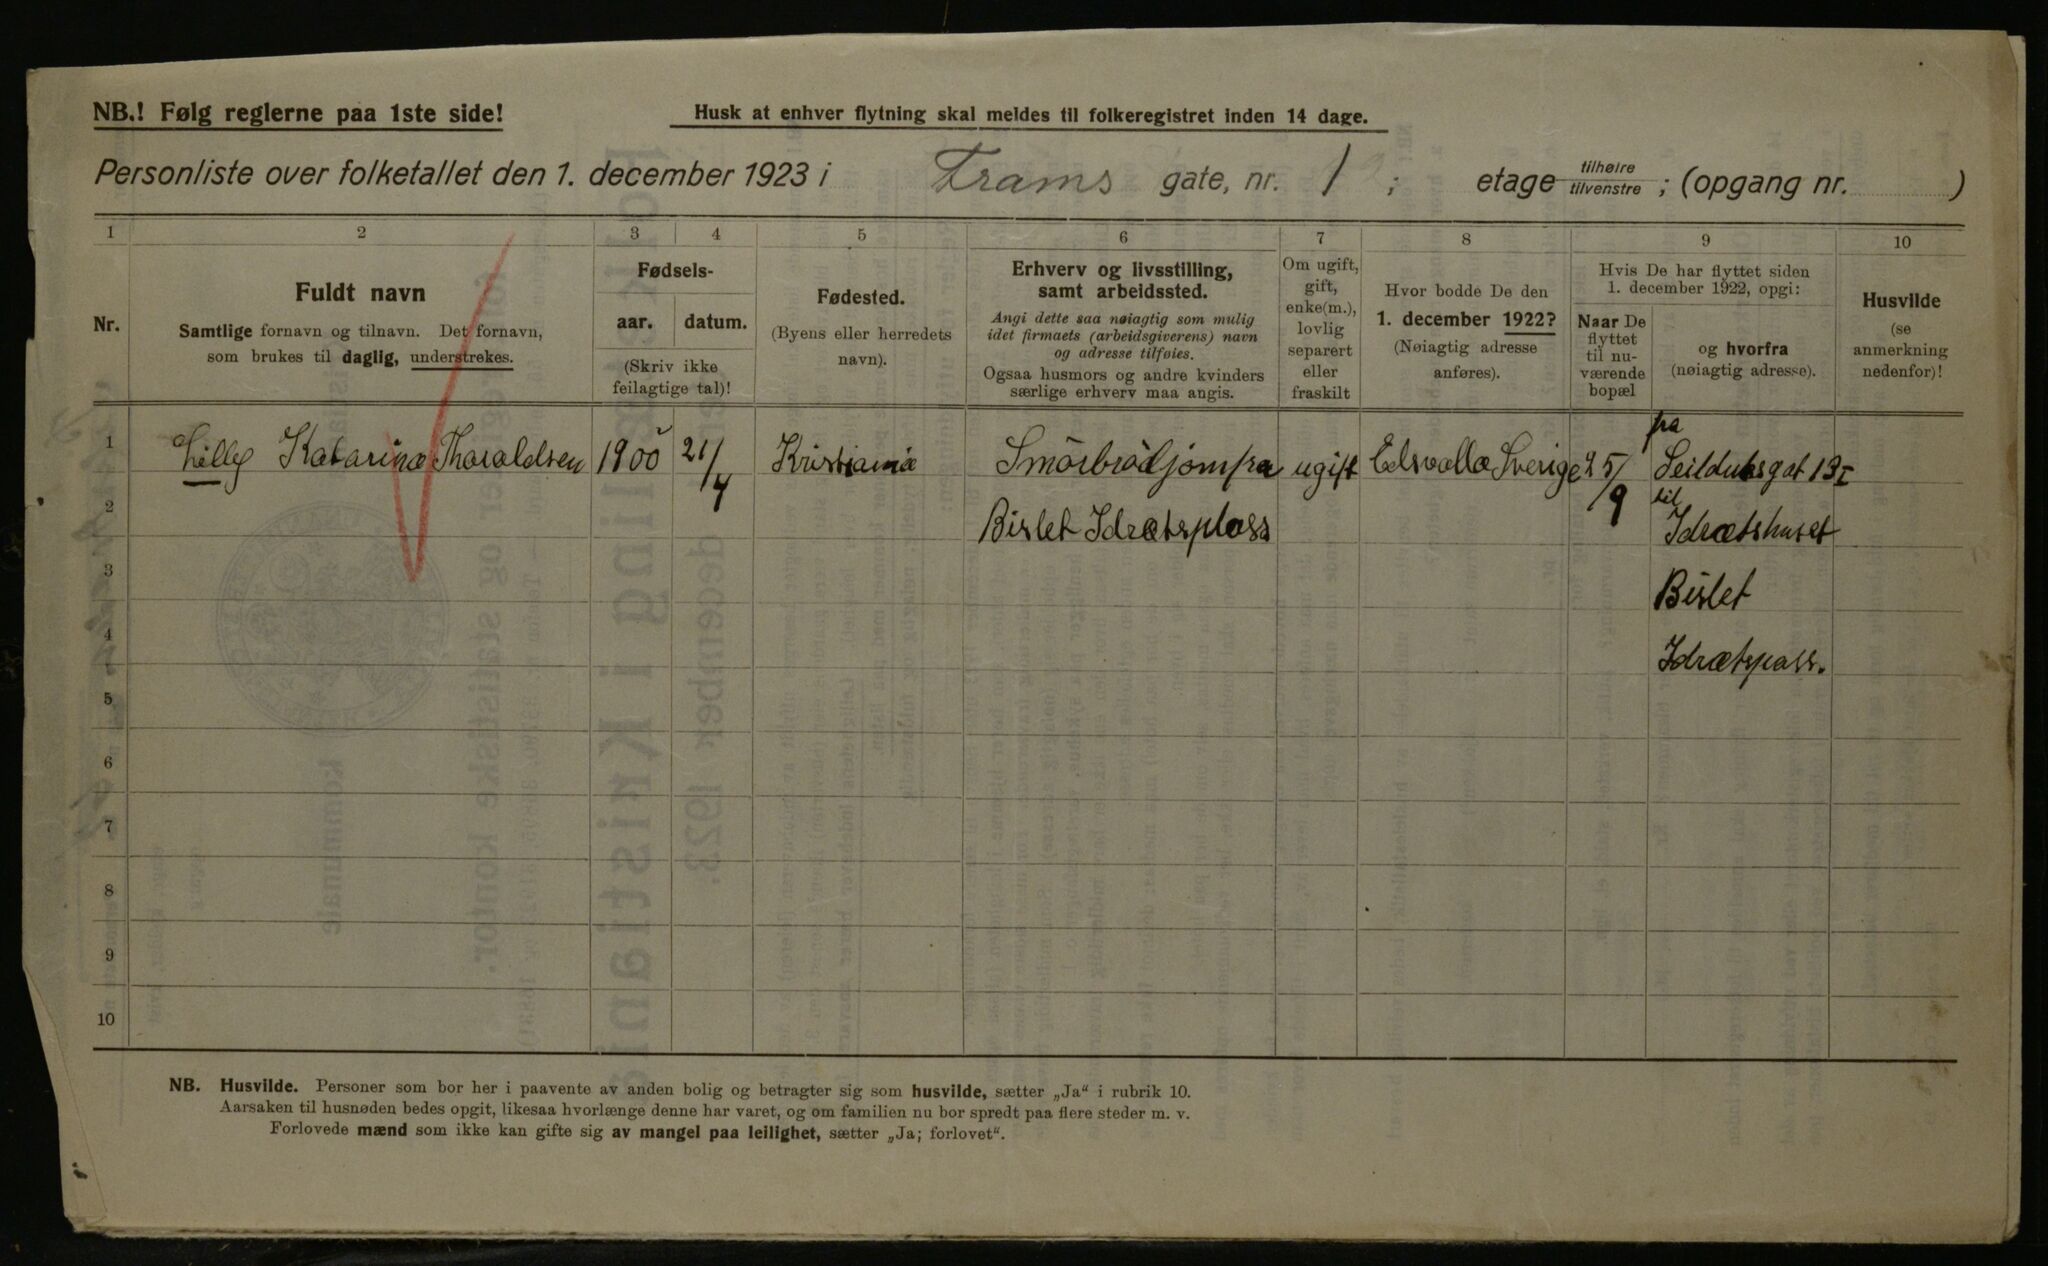 NB.! Følg reglerne paa 1ste side!
Husk at enhver flytning skal meldes til folkeregistret inden 14 dage.
Personliste over folketallet den 1. december 1923 i Frams gate, nr. 1 ; etage tilhøire tilvenstre ; (opgang nr. )
1 2 3 4 5 6 7 8 9 10
Nr.
Fuldt navn
Samtlige fornavn og tilnavn. Det fornavn,
som brukes til daglig, understrekes.
Fødsels-
aar. datum.
(Skriv ikke
feilagtige tal)!
Fødested.
(Byens eller herredets
navn).
Erhverv og livsstilling,
samt arbeidssted.
Angi dette saa nøiagtig som mulig
idet firmaets (arbeidsgiverens) navn
og adresse tilføies.
Ogsaa husmors og andre kvinders
særlige erhverv maa angis.
Om ugift,
gift,
enke(m.),
lovlig
separert
eller
fraskilt
Hvor bodde De den
1. december 1922?
(Nøiagtig adresse
anføres).
Hvis De har flyttet siden
1. december 1922, opgi:
Naar De
flyttet
til nu-
værende
bopæl
og hvorfra
(nøiagtig adresse).
Husvilde
(se
anmerkning
nedenfor)!
1 Lilly Katarina Tharaldsen 1900 21/4 Kristiania Smörbrödjomfra ugift Edsvalla Sverige 25/9 fra Seilduksgat 13 I
2 Bislet Idrætsplass til Idrætshuset
3 Bislet
4 Idrætspass.
5
6
7
8
9
10
NB. Husvilde. Personer som bor her i paavente av anden bolig og betragter sig som husvilde, sætter „Ja“ i rubrik 10.
Aarsaken til husnøden bedes opgit, likesaa hvorlænge denne har varet, og om familien nu bor spredt paa flere steder m. v.
Forlovede mænd som ikke kan gifte sig av mangel paa leilighet, sætter „Ja; forlovet“.